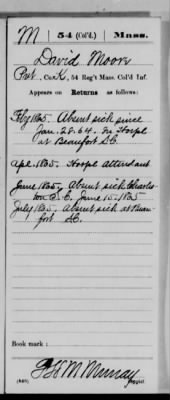 M | 54 (Col'd.) | Mass.
David Moon
Pvt, Co. K, 54 Reg't Mass. Col'd Inf.
Appears on Returns as follows:
Feby 1865. Absent sick since
Jan. 28. 64. In Hospl
at Beaufort S.C.
Apl. 1865. Hospl attendant
June 1865, Absent sick Charles-
ton S.C. June 15. 1865
July 1865. Absent sick at Beau-
fort S.C.
Book mark:
M Murray
Copyist.